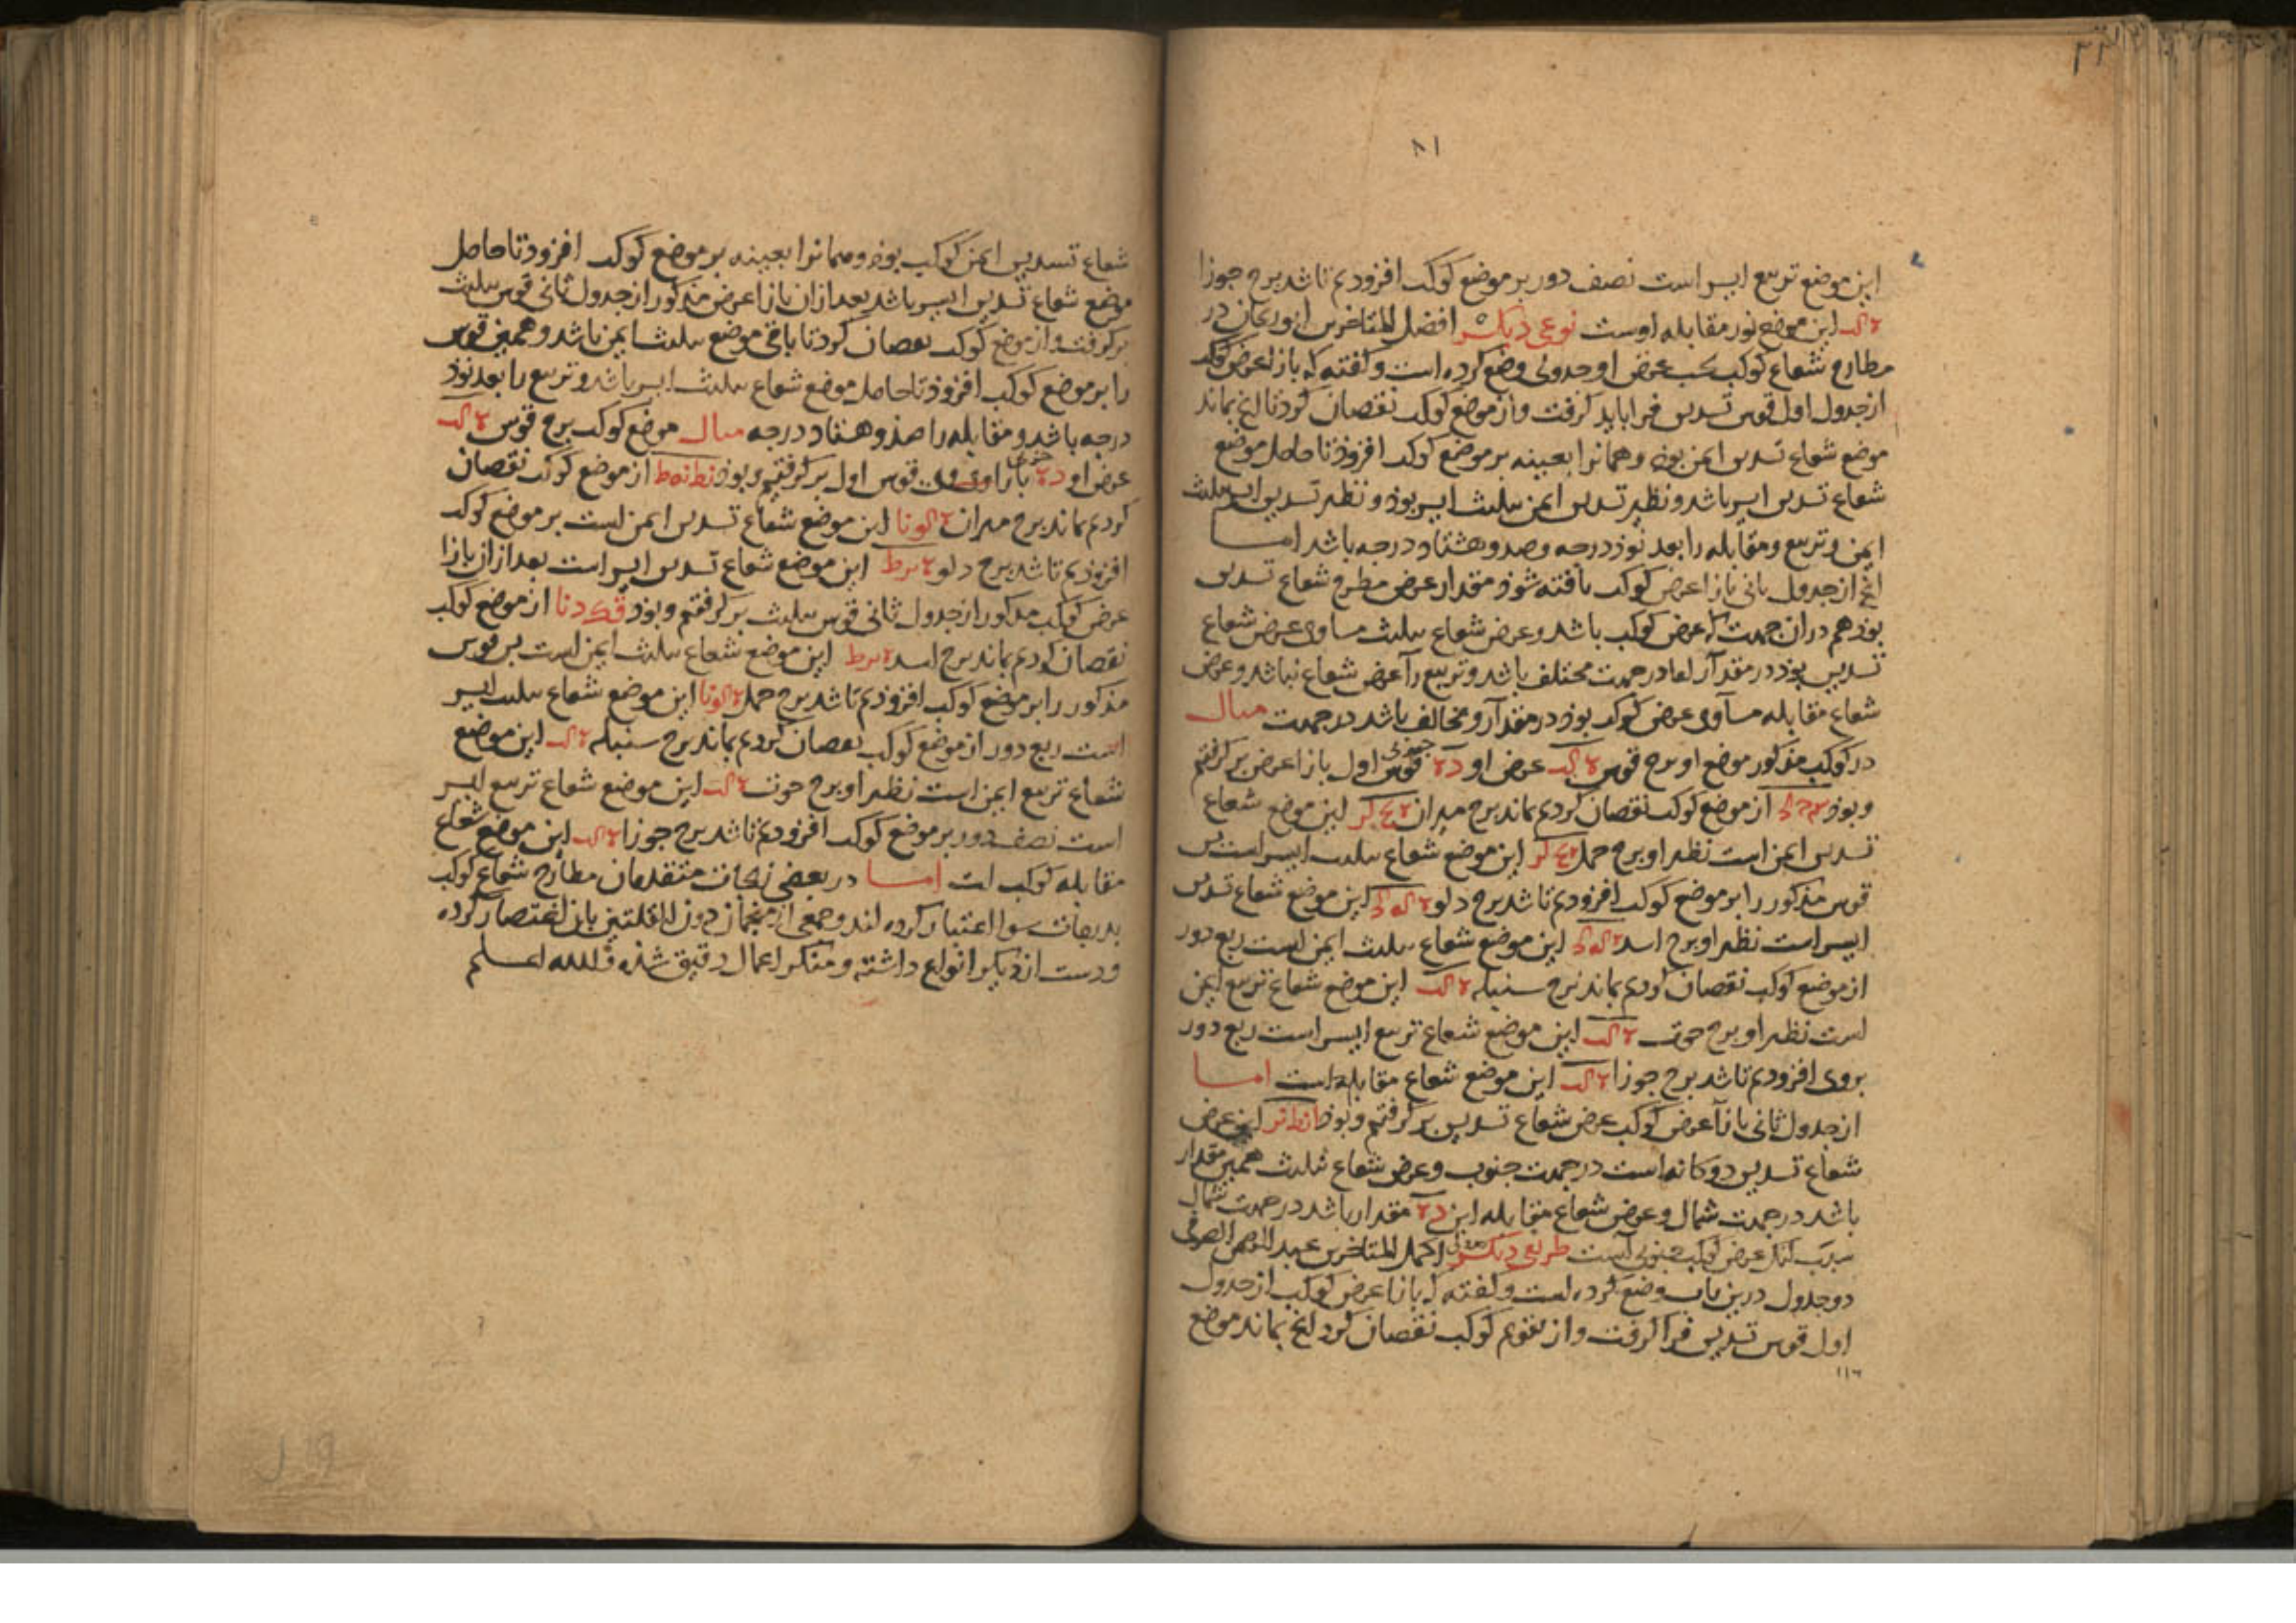 ۸۱
این موضع تربیع ایسر است نصف دور بر موضع کوکب افزودیم تا شد برج جوزا
این موضع نور مقابله اوست نوعی دیگر افضل المتاخرین ابو ریحان در
مطارح شعاع کوکب بحسب عرض او جدولی وضع کرده است و گفته که بازاء عرض کوکب
از جدول اول قوس تسدیس فرا باید گرفت و از موضع کوکب نقصان کرد تا انچ بماند
موضع شعاع تسدیس ایمن بود و همانرا بعینه بر موضع کوکب افزود تا حاصل موضع
شعاع تسدیس ایسر باشد و نظیر تسدیس ایمن تثلیث ایسر بود و نظیر تسدیس ایسر تثلیث
ایمن و تربیع و مقابله را بعد نود درجه و صد و هشتاد درجه باشد اما
انچ از جدول ثانی بازاء عرض کوکب یافته شود مقدار عرض مطرح شعاع تسدیس
بود هم در ان جهت که عرض کوکب باشد و عرض شعاع تثلیث مساوی عرض شعاع
تسدیس بود در مقدار اما در جهت مختلف باشد و تربیع را عرض شعاع نباشد و عرض
شعاع مقابله مساوی عرض کوکب بود در مقدار و مخالف باشد در جهت مثال
در کوکب مذکور موضع او برج قوس عرض او جنوبی قوس اول بازاء عرض بر گرفتیم
و بود از موضع کوکب نقصان کردیم بماند برج میزان این موضع شعاع
تسدیس ایمن است نظیر او برج حمل این موضع شعاع تثلیث ایسر است پس
قوس مذکور را بر موضع کوکب افزودیم تا شد برج دلو این موضع شعاع تسدیس
ایسر است نظیر او برج اسد این موضع شعاع تثلیث ایمن است ربع دور
از موضع کوکب نقصان کردیم بماند برج سنبله این موضع شعاع تربیع ایمن
است نظیر او برج حوت این موضع شعاع تربیع ایسر است ربع دور
بروی افزودیم تا شد برج جوزا این موضع شعاع مقابله است اما
از جدول ثانی بازاء عرض کوکب عرض شعاع تسدیس بر گرفتیم و بود این عرض
شعاع تسدیس دوگانه است در جهت جنوب و عرض شعاع تثلیث همین مقدار
باشد در جهت شمال و عرض شعاع مقابله این مقدار باشد در جهت شمال
سبب انک عرض کوکب جنوبی است طریق دیگر اکمل المتاخرین عبد الرحمن
دو جدول درین باب وضع کرده است و گفته که بازاء عرض کوکب از جدول
اول قوس تسدیس فرا گرفت و از تقویم کوکب نقصان کرد انچ بماند موضع
۱۱۶
شعاع تسدیس ایمن کوکب بود و همانرا بعینه بر موضع کوکب افزود تا حاصل
موضع شعاع تسدیس ایسر باشد بعد ازان بازاء عرض مذکور از جدول ثانی قوس تثلیث
بر گرفت و از موضع کوکب نقصان کرد تا باقی موضع تثلیث ایمن باشد و همین قوس
را بر موضع کوکب افزود تا حاصل موضع شعاع تثلیث ایسر باشد و تربیع را بعد نود
درجه باشد و مقابله را صد و هشتاد درجه مثال موضع کوکب برج قوس
عرض او جنوبی قوس اول بر گرفتیم و بود از موضع کوکب نقصان
کردیم بماند برج میزان این موضع شعاع تسدیس ایمن است بر موضع کوکب
افزودیم تا شد برج دلو این موضع شعاع تسدیس ایسر است بعد ازان بازاء
عرض کوکب مذکور از جدول ثانی قوس تثلیث بر گرفتیم و بود از موضع کوکب
نقصان کردیم بماند برج اسد این موضع شعاع تثلیث ایمن است پس قوس
مذکور را بر موضع کوکب افزودیم تا شد برج حمل این موضع شعاع تثلیث ایسر
است ربع دور از موضع کوکب نقصان کردیم بماند برج سنبله این موضع
شعاع تربیع ایمن است نظیر او برج حوت این موضع شعاع تربیع ایسر
است نصف دور بر موضع کوکب افزودیم تا شد برج جوزا این موضع شعاع
مقابله کوکب است اما در بعضی زیجات متقدمان مطارح شعاع کوکب
بدرجات سوا اعتبار کرده اند و جمعی از منجمان باین اختصار کرده
و دست از دیگر انواع داشته و منکر اعمال دقیق شده والله اعلم